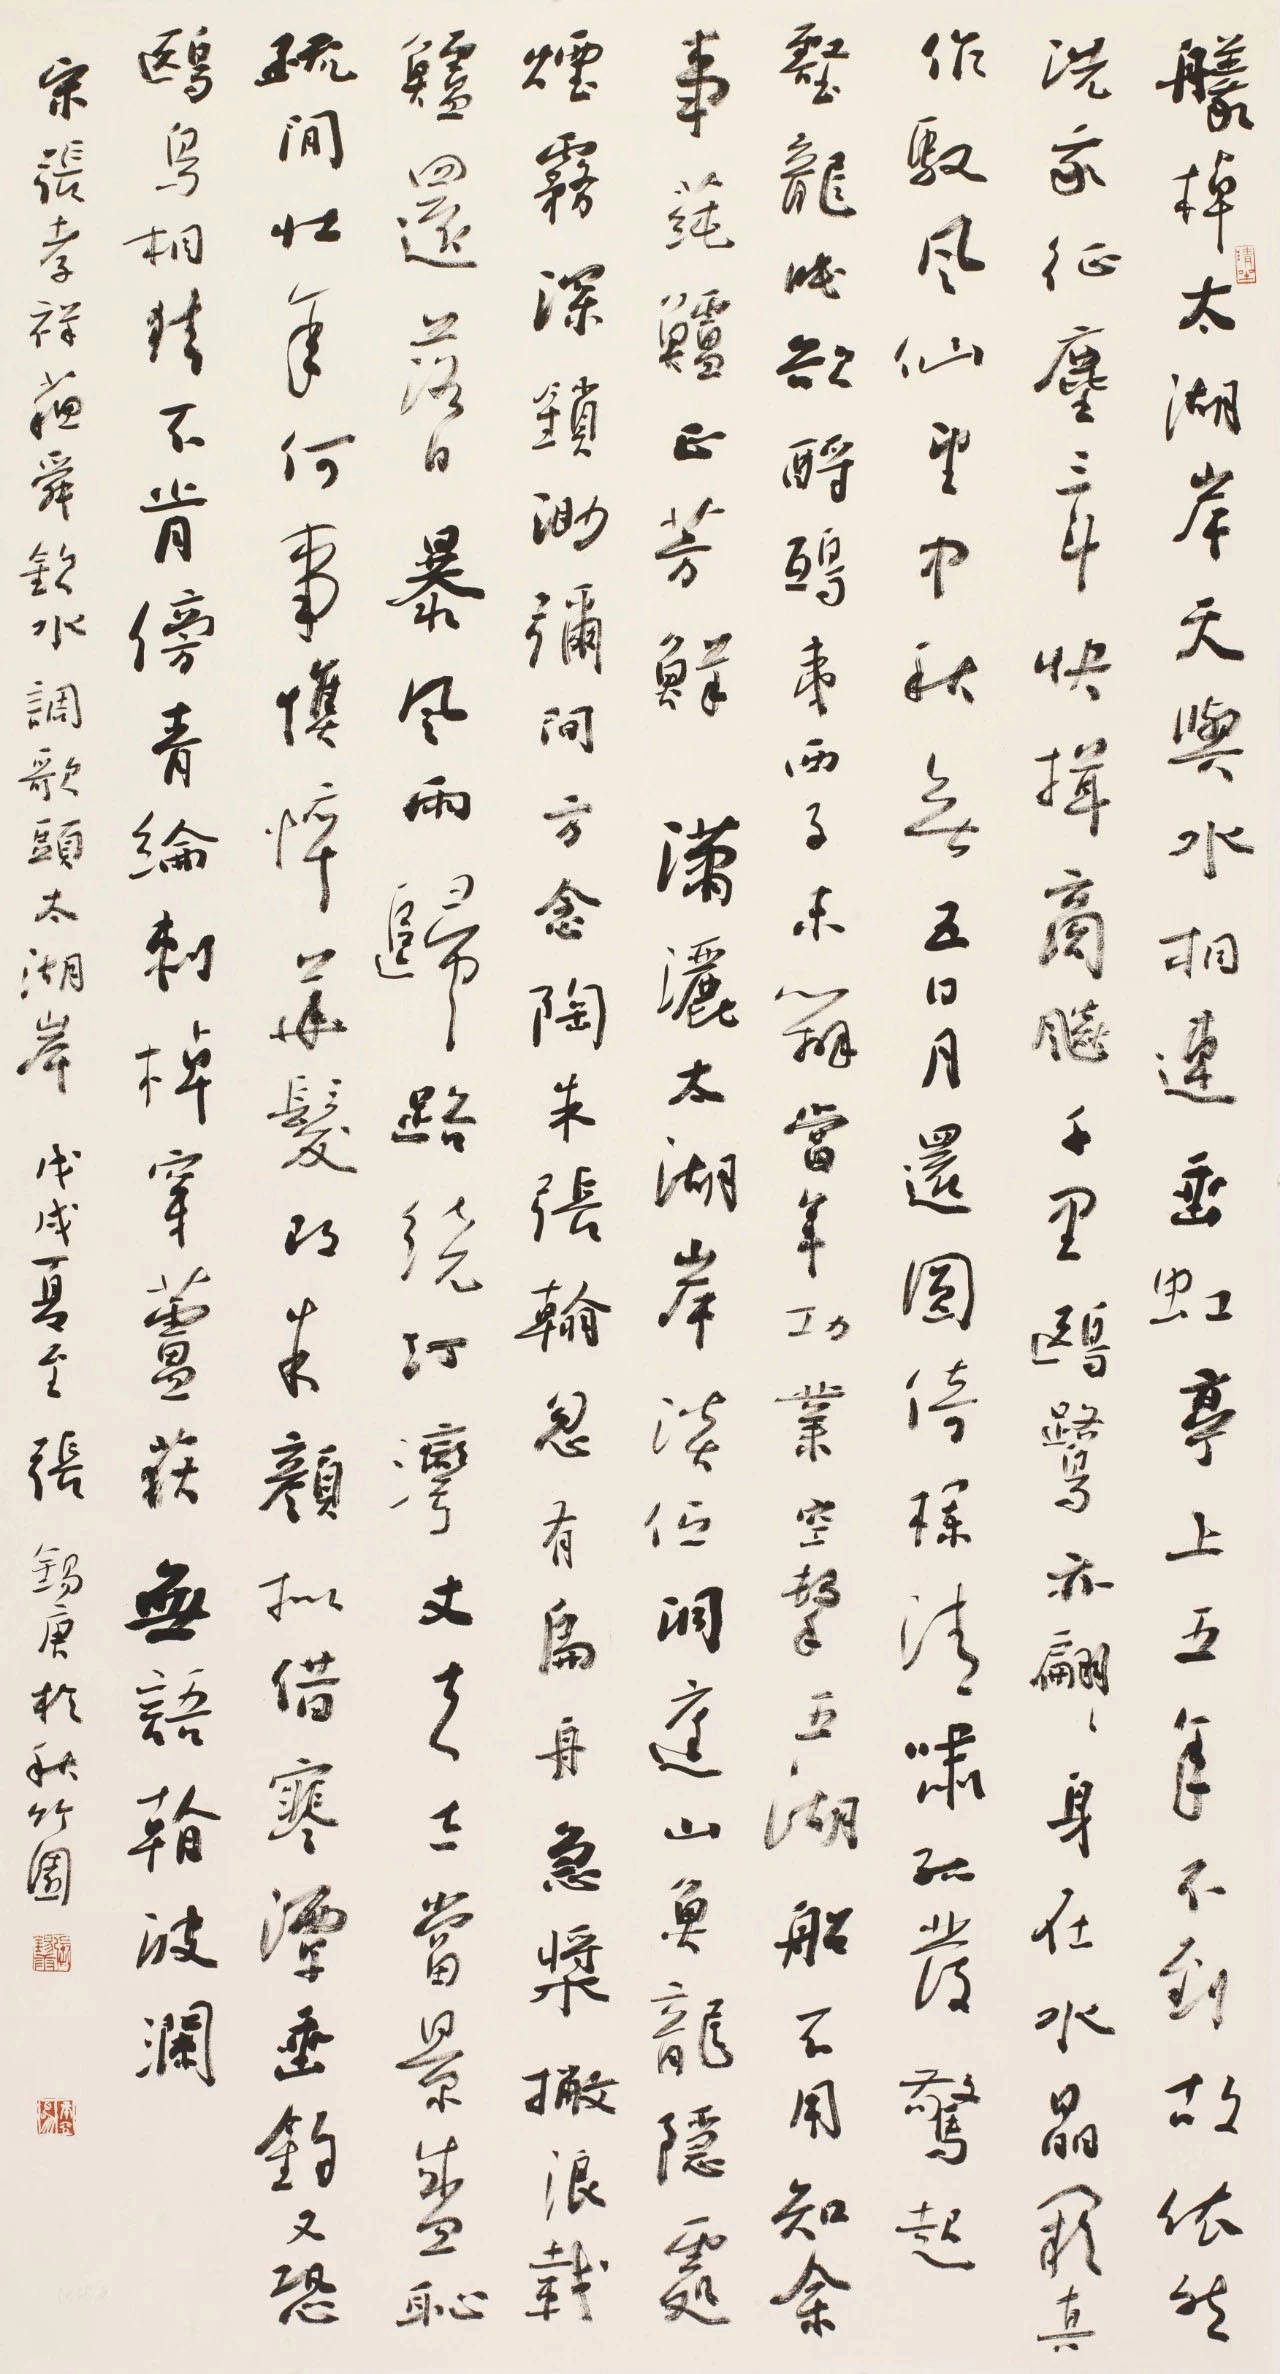 艤棹太湖岸天與水相連垂虹亭上五年不到故依然
洗我征塵三斗快揖商飈千里鷗鷺亦翩〻身在水晶闕真
作馭風仙望中秋無五日月還圓倚欄清嘯孤發驚起
壑龍眠欲酹鴟夷西子未辦當年功業空擊五湖船不用知余
事蓴鱸正芳鮮 瀟灑太湖岸淡佇洞庭山魚龍隱處
煙霧深鎖渺彌間方念陶朱張翰忽有扁舟急槳撇浪載
鱸還落日暴風雨歸路繞汀灣丈夫志當景盛恥
疏閒壯年何事憔悴華髮改朱顏擬借寒潭垂釣又恐
鷗鳥相猜不肯傍青綸刺棹穿蘆荻無語看波瀾
宋張孝祥蘇舜欽水調歌頭太湖岸 戊戌夏至張錫庚於秋竹園